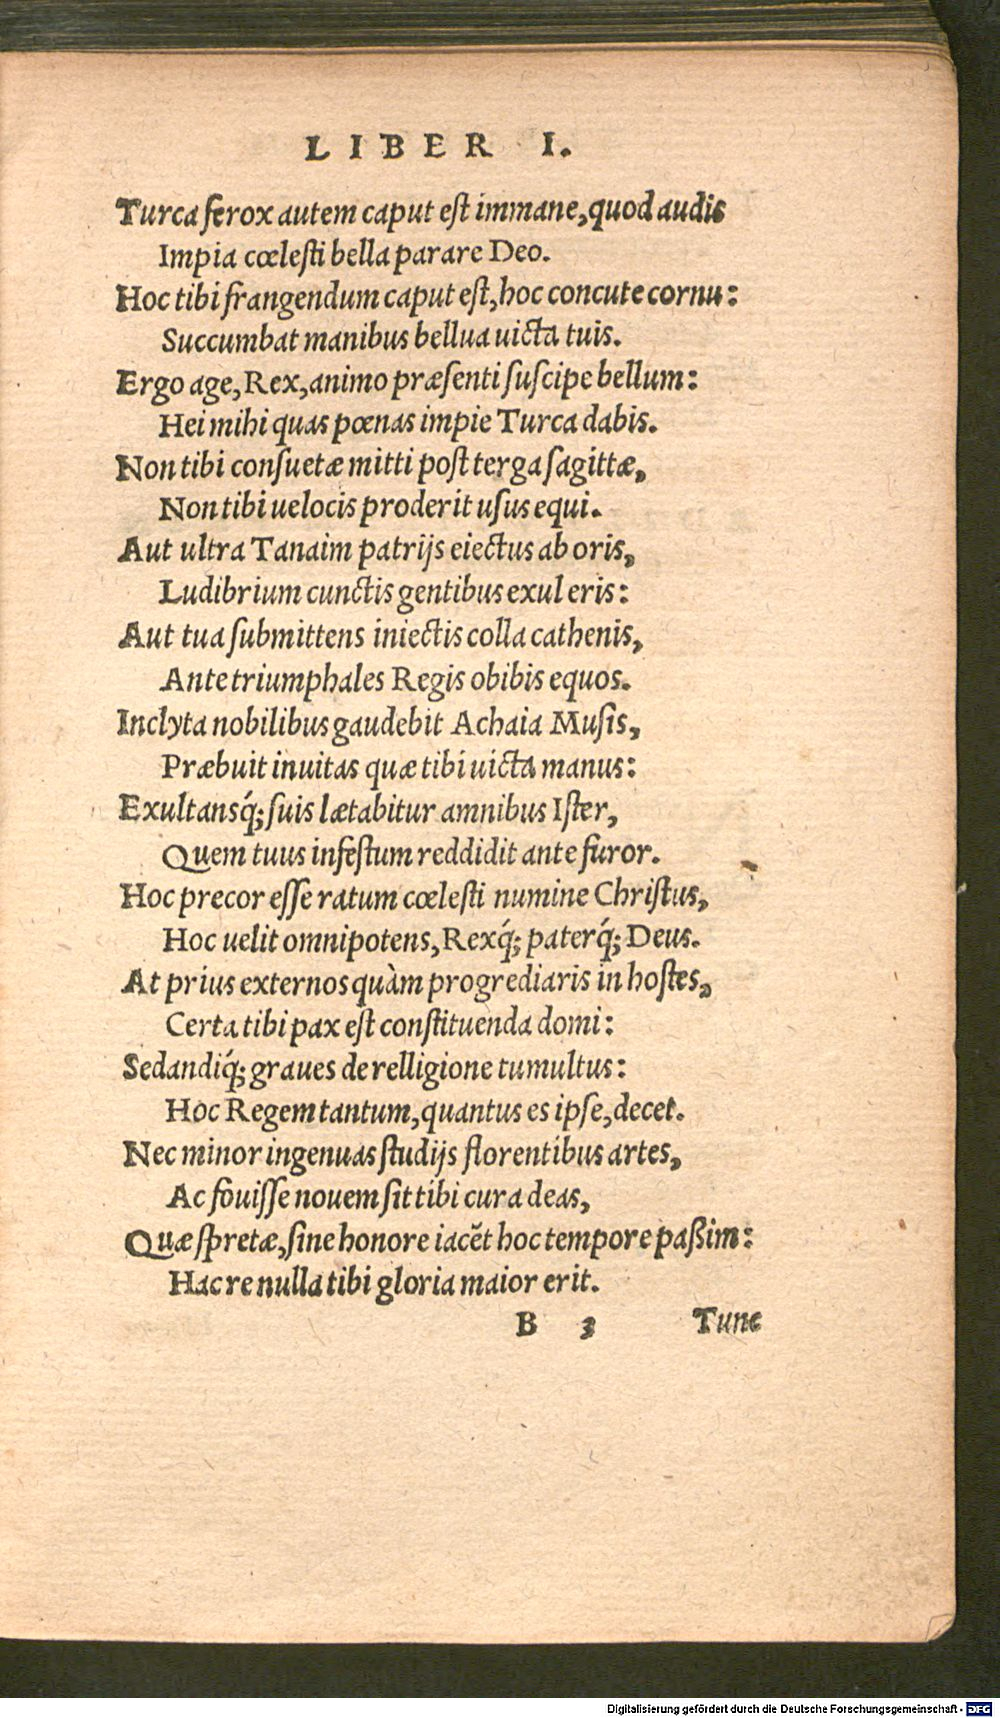 LIBER I.
Turca ferox autem caput est immane, quod audis
Impia cœlesti bella parare Deo.
Hoc tibi frangendum caput est, hoc concute cornu:
Succumbat manibus bellua uicta tuis.
Ergo age, Rex, animo præsenti suscipe bellum:
Hei mihi quas pœnas impie Turca dabis.
Non tibi consuetæ mitti post terga sagittæ,
Non tibi uelocis proderit usus equi.
Aut ultra Tanaim patrijs eiectus ab oris,
Ludibrium cunctis gentibus exul eris:
Aut tua submittens iniectis colla cathenis,
Ante triumphales Regis obibis equos.
Inclyta nobilibus gaudebit Achaia Musis,
Præbuit inuitas quæ tibi uicta manus:
Exultansq́; suis lætabitur amnibus Ister,
Quem tuus infestum reddidit ante furor.
Hoc precor esse ratum cœlesti numine Christus,
Hoc uelit omnipotens, Rexq́; paterq́; Deus.
At prius externos quàm progrediaris in hostes,
Certa tibi pax est constituenda domi:
Sedandiq́; graues de relligione tumultus:
Hoc Regem tantum, quantus es ipse, decet.
Nec minor ingenuas studijs florentibus artes,
Ac fouisse nouem sit tibi cura deas,
Quæ spretæ, sine honore iacẽt hoc tempore paßim:
Hac re nulla tibi gloria maior erit.
B 3 Tunc
Digitalisierung gefördert durch die Deutsche Forschungsgemeinschaft - DFG